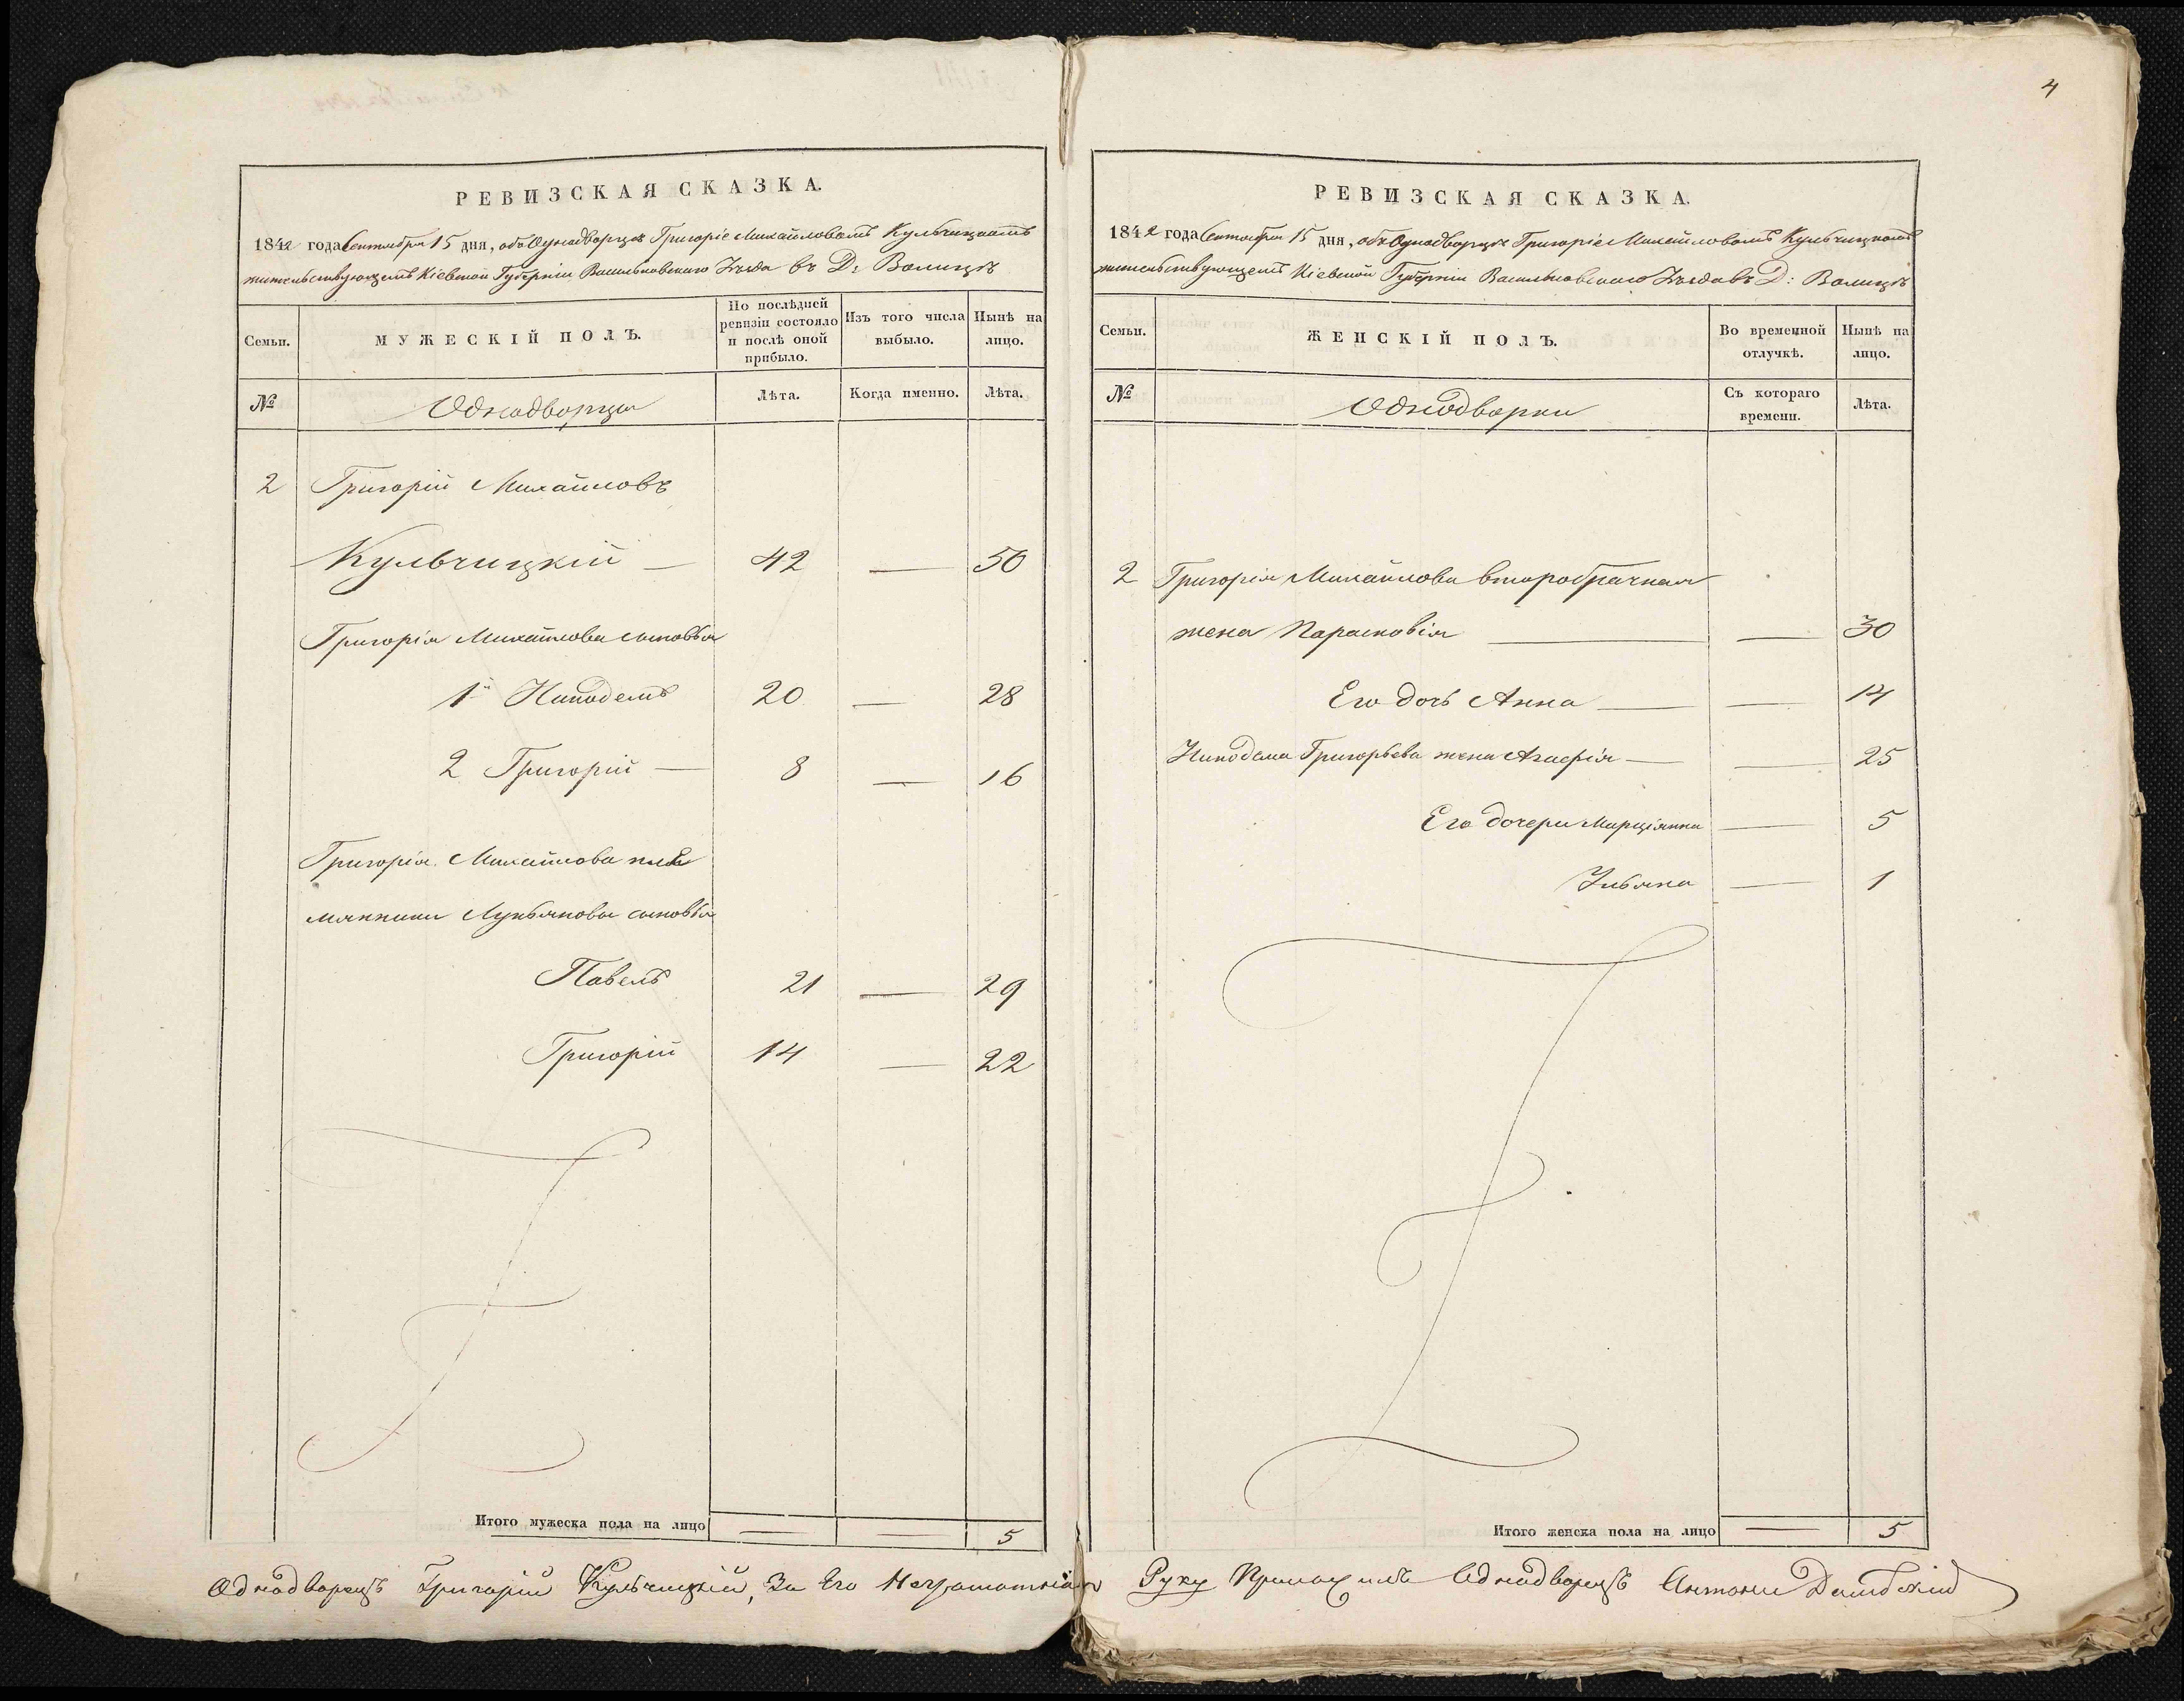 4
РЕВИЗСКАЯ СКАЗКА.
1842 года Сентября 15 дня, объ Однодворцѣ Григоріе Михайловомъ Кульчицкомъ
жительствующемъ Кіевской Губерніи Васильковскаго Уѣзда въ Д: Волицѣ
Семьи.
МУЖЕСКІЙ ПОЛЪ.
По послѣдней
ревизіи состояло
и послѣ оной
прибыло.
Изъ того числа
выбыло.
Нынѣ на
лицо.
№
Однодворцы
Лѣта.
Когда именно.
Лѣта.
2 Григорій Михайловъ
Кульчицкій — 42 — 50
Григорія Михайлова сыновья
1й Никодемъ 20 — 28
2 Григорій — 8 — 16
Григорія Михайлова пле
мянники Лукьянова сыновья
Павелъ 21 — 29
Григорій 14 — 22
Итого мужеска пола на лицо — — 5
РЕВИЗСКАЯ СКАЗКА.
1842 года Сентября 15 дня, объ Однодворцѣ Григоріе Михайловомъ Кульчицкомъ
жительствующемъ Кіевской Губерніи Васильковскаго Уѣзда въ Д: Волицѣ
Семьи.
ЖЕНСКІЙ ПОЛЪ.
Во временной
отлучкѣ.
Нынѣ на
лицо.
№
Однодворки
Съ котораго
времени.
Лѣта.
2 Григорія Михайлова второбрачная
жена Парасковія — — 30
Его дочь Анна — — 14
Никодема Григорьева жена Агафія — — 25
Его дочери Марціянна — 5
Ульяна — 1
Итого женска пола на лицо — 5
Однодворецъ Григорій Кульчицкій, За Его Руку Однодворецъ Антони